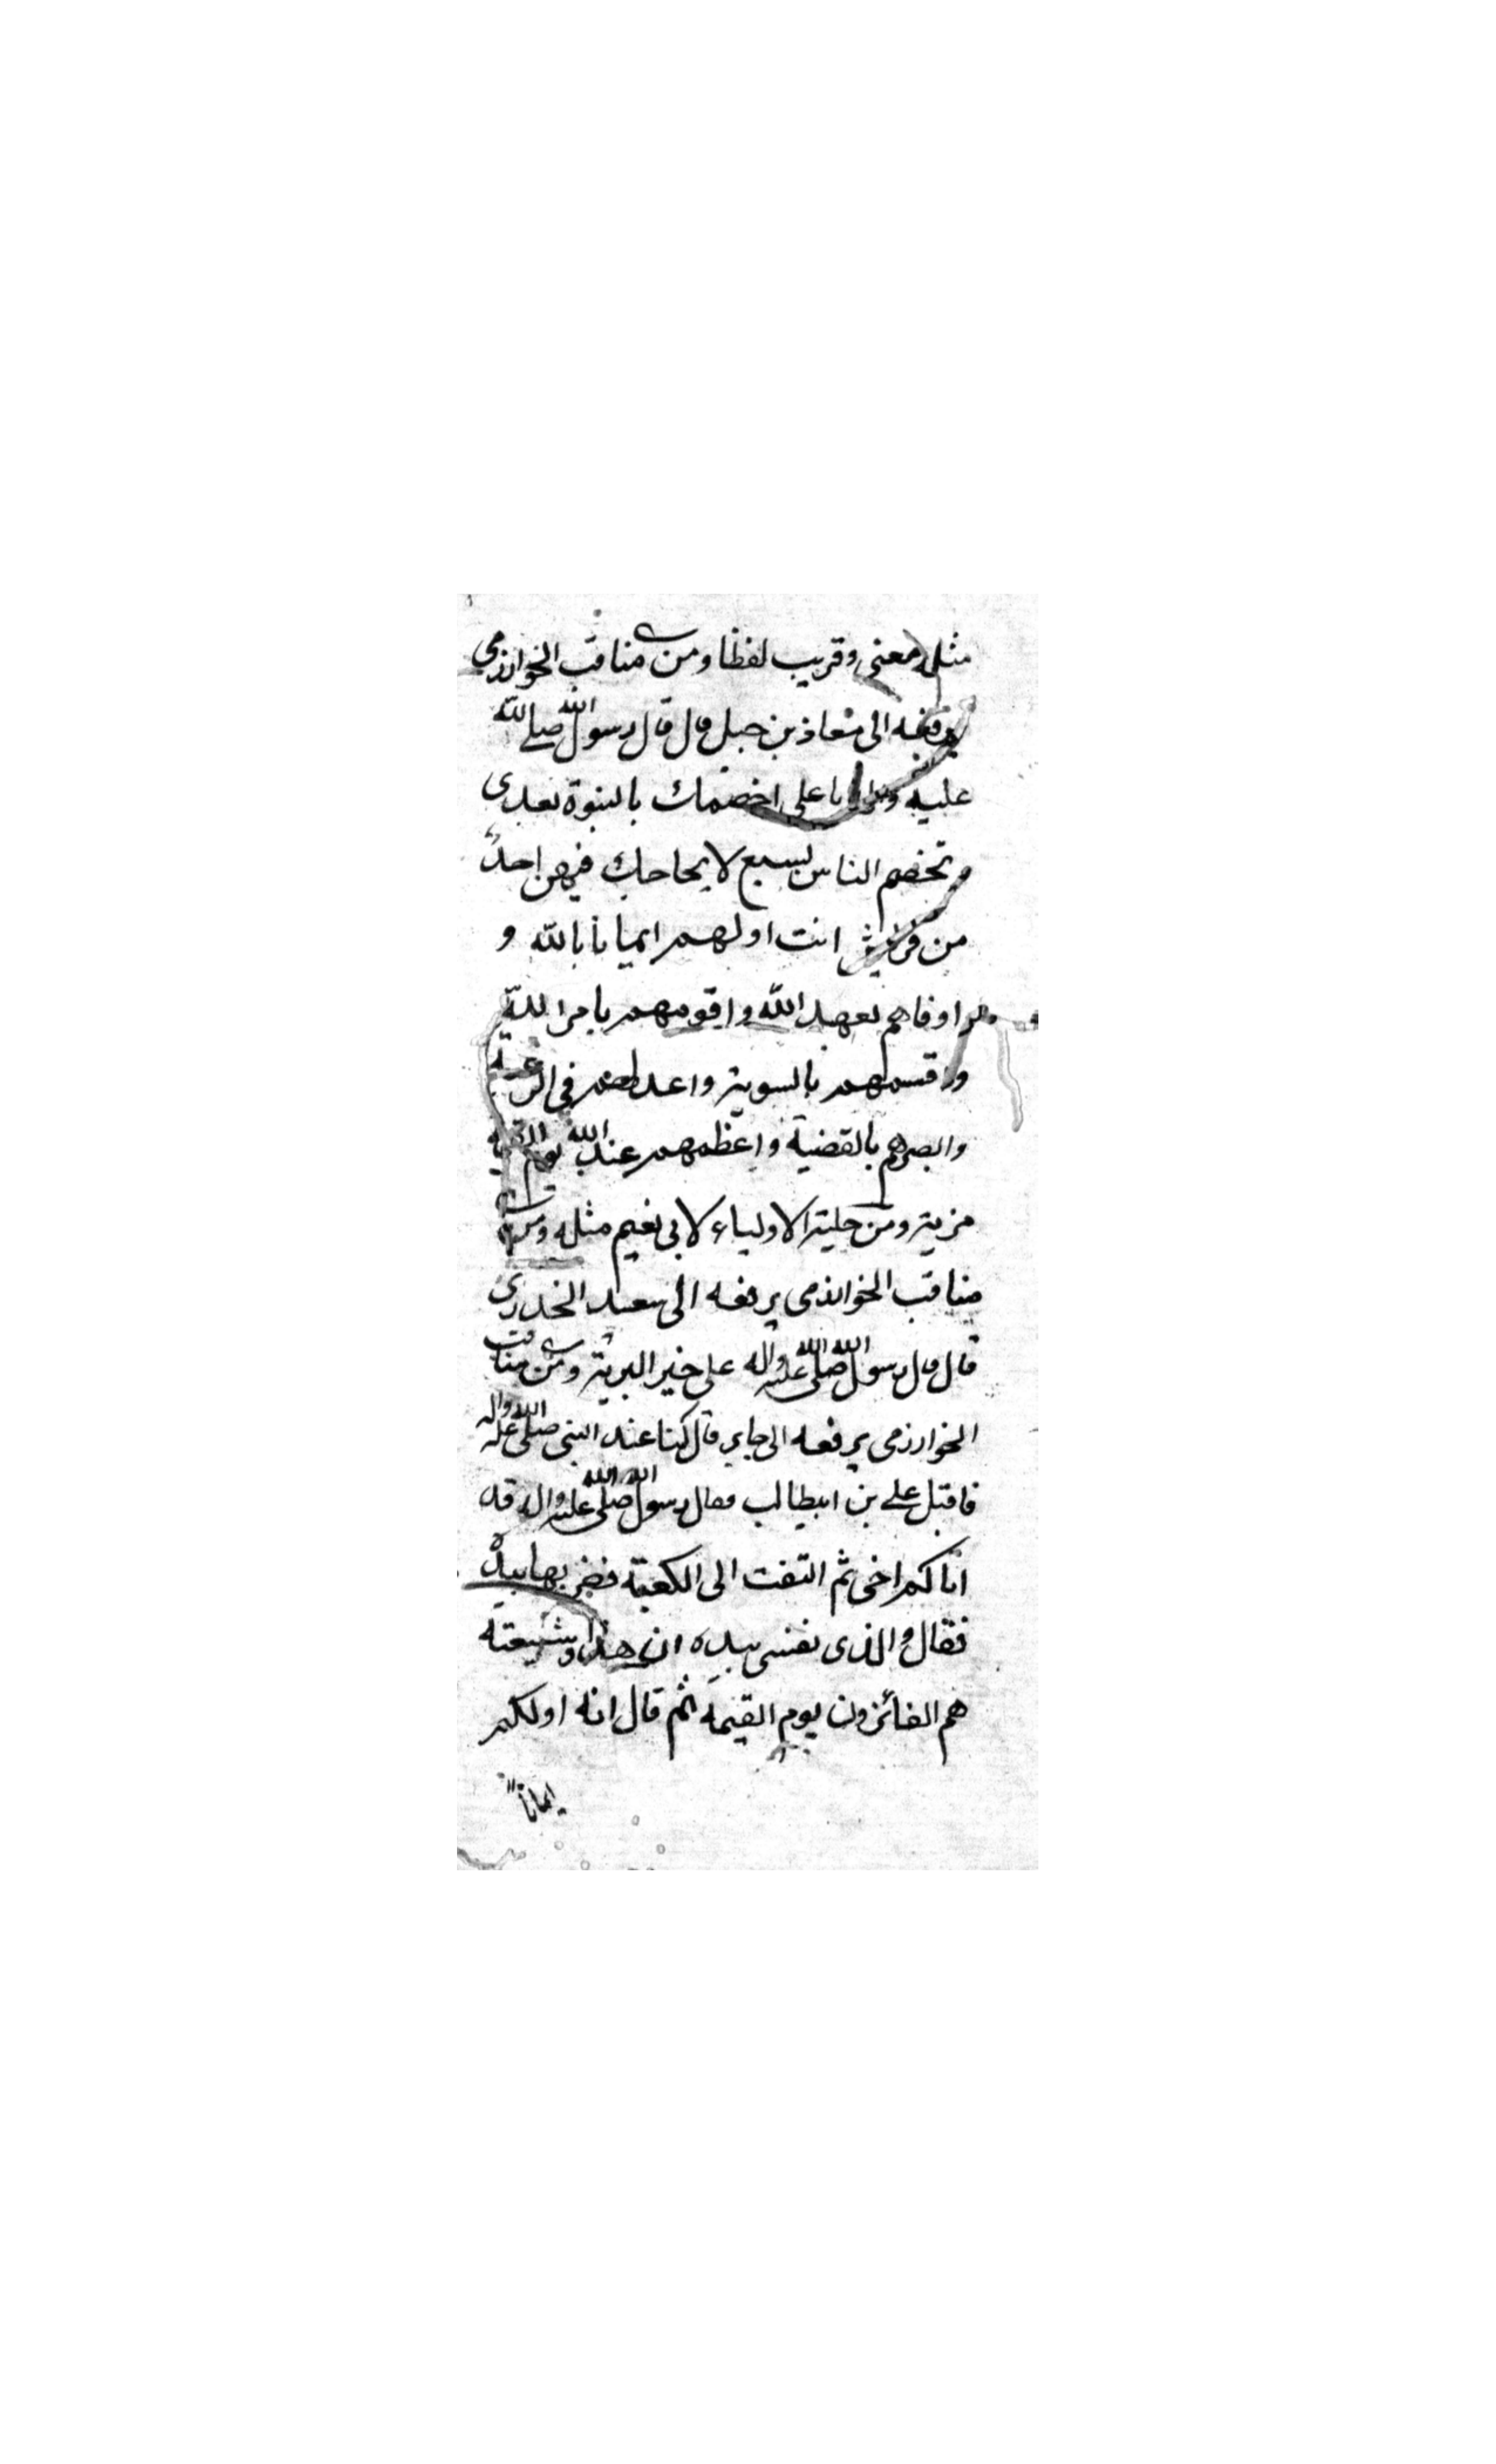 مثله معنى وقريب لفظا ومن مناقب الخوارزمي
يرفعه الى معاذ بن جبل قال قال رسول الله صلى الله
عليه يا على اخصمك بالنبوة بعدى
وتخصم الناس بسبع لا يحاجك فيهن احدٌ
من قريش انت اولهم ايمانا بالله و
اوفاهم بعهد الله واقومهم بامر الله
واقسمهم بالسوية واعدلهم فى الرعية
وابصرهم بالقضية واعظمهم عند الله يوم القيمة
مزية ومن حلية الاولياء لابى نعيم مثله ومن
مناقب الخوارزمى يرفعه الى سعيد الخدرى
قال قال رسول الله صلى الله عليه واله على خير البرية ومن مناقب
الخوارزمى يرفعه الى جابر قال كنا عند النبى صلى الله عليه واله
فاقبل على بن ابيطالب فقال رسول الله صلى الله عليه واله قد
اتاكم اخى ثم التفت الى الكعبة فضربها بيده
فقال والذى نفسى بيده ان هذا وشيعته
هم الفائزون يوم القيمة ثم قال انه اولكم
ايمانا